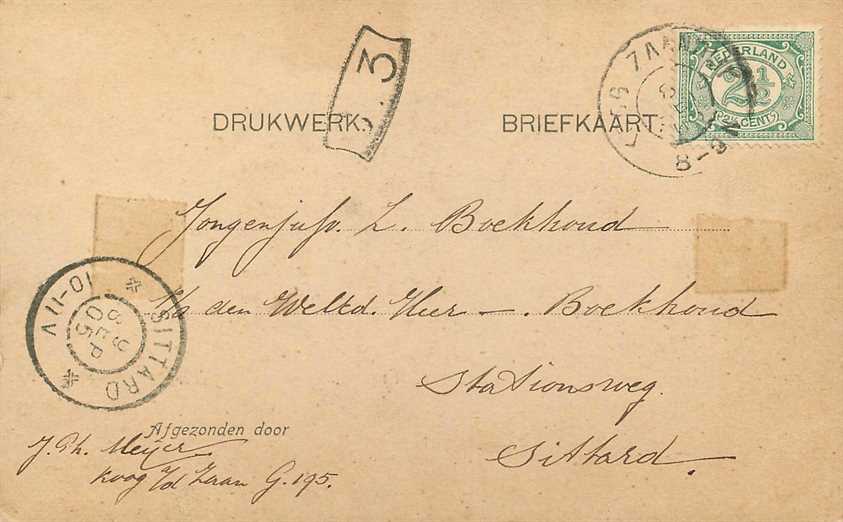 3
NEDERLAND
2½
2½ CENT
8-9 N
DRUKWERK. BRIEFKAART
Jongenjufv. L. Boekhoud
p/a den Weled. Heer — Boekhoud
Stationsweg.
Sittard.
SITTARD
9 SEP 05
10-11 V
Afgezonden door
J. Ph. Meijer
Koog a/d Zaan G. 195.